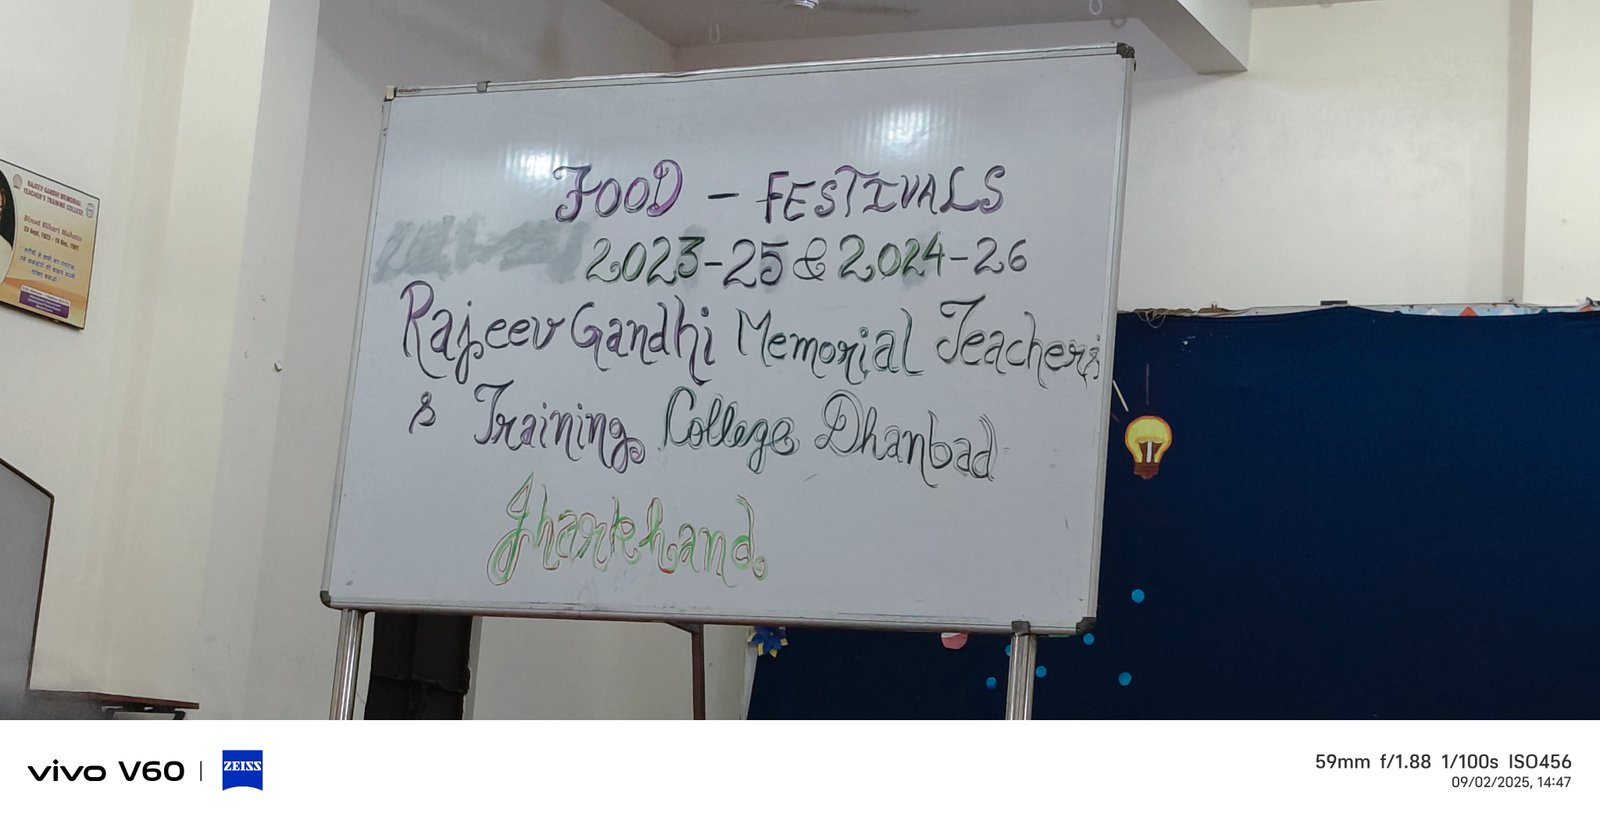 FOOD - FESTIVALS
2023-25 & 2024-26
Rajeev Gandhi Memorial Teachers'
s Training College Dhanbad
Jharkhand
RAJEEV GANDHI MEMORIAL
TEACHER'S TRAINING COLLEGE
Binod Bihari Mahato
23 Sept. 1923 - 18 Dec. 1991
vivo V60
ZEISS
59mm f/1.88 1/100s ISO456
09/02/2025, 14:47